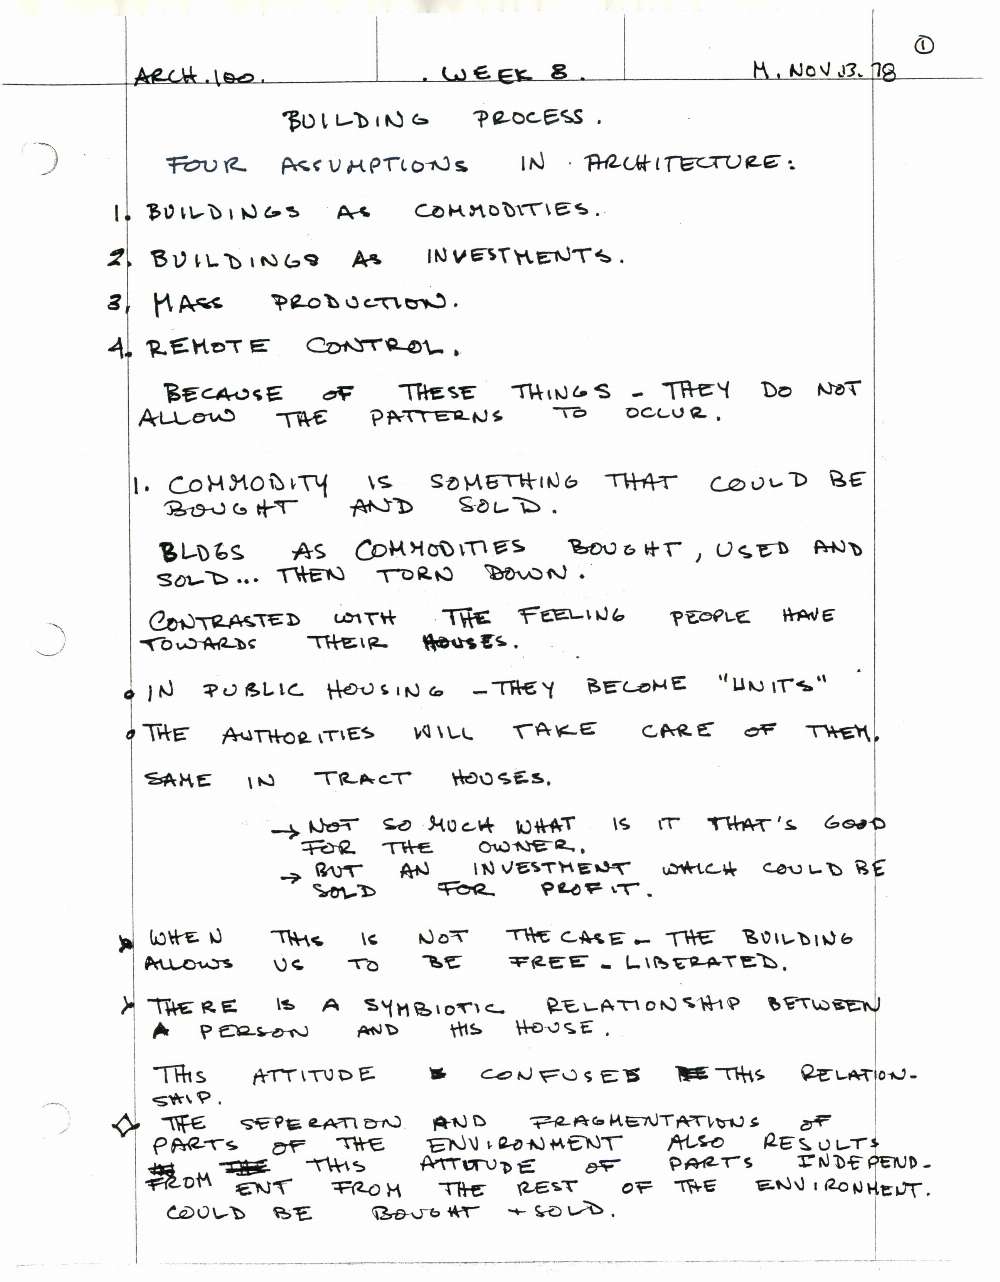 ①
ARCH.100. . WEEK 8. M. NOV 13. 78
BUILDING PROCESS.
FOUR ASSUMPTIONS IN ARCHITECTURE:
1. BUILDINGS AS COMMODITIES.
2. BUILDINGS AS INVESTMENTS.
3. MASS PRODUCTION.
4. REMOTE CONTROL.
BECAUSE OF THESE THINGS - THEY DO NOT
ALLOW THE PATTERNS TO OCCUR.
1. COMMODITY IS SOMETHING THAT COULD BE
BOUGHT AND SOLD.
BLDGS AS COMMODITIES BOUGHT, USED AND
SOLD... THEN TORN DOWN.
CONTRASTED WITH THE FEELING PEOPLE HAVE
TOWARDS THEIR HOUSES.
IN PUBLIC HOUSING - THEY BECOME "UNITS"
THE AUTHORITIES WILL TAKE CARE OF THEM.
SAME IN TRACT HOUSES.
→ NOT SO MUCH WHAT IS IT THAT'S GOOD
FOR THE OWNER.
→ BUT AN INVESTMENT WHICH COULD BE
SOLD FOR PROFIT.
WHEN THIS IS NOT THE CASE - THE BUILDING
ALLOWS US TO BE FREE - LIBERATED.
THERE IS A SYMBIOTIC RELATIONSHIP BETWEEN
A PERSON AND HIS HOUSE.
THIS ATTITUDE CONFUSES THIS RELATION-
SHIP.
THE SEPERATION AND FRAGMENTATIONS OF
PARTS OF THE ENVIRONMENT ALSO RESULTS
FROM THIS ATTITUDE OF PARTS INDEPEND-
ENT FROM THE REST OF THE ENVIRONMENT.
COULD BE BOUGHT + SOLD.